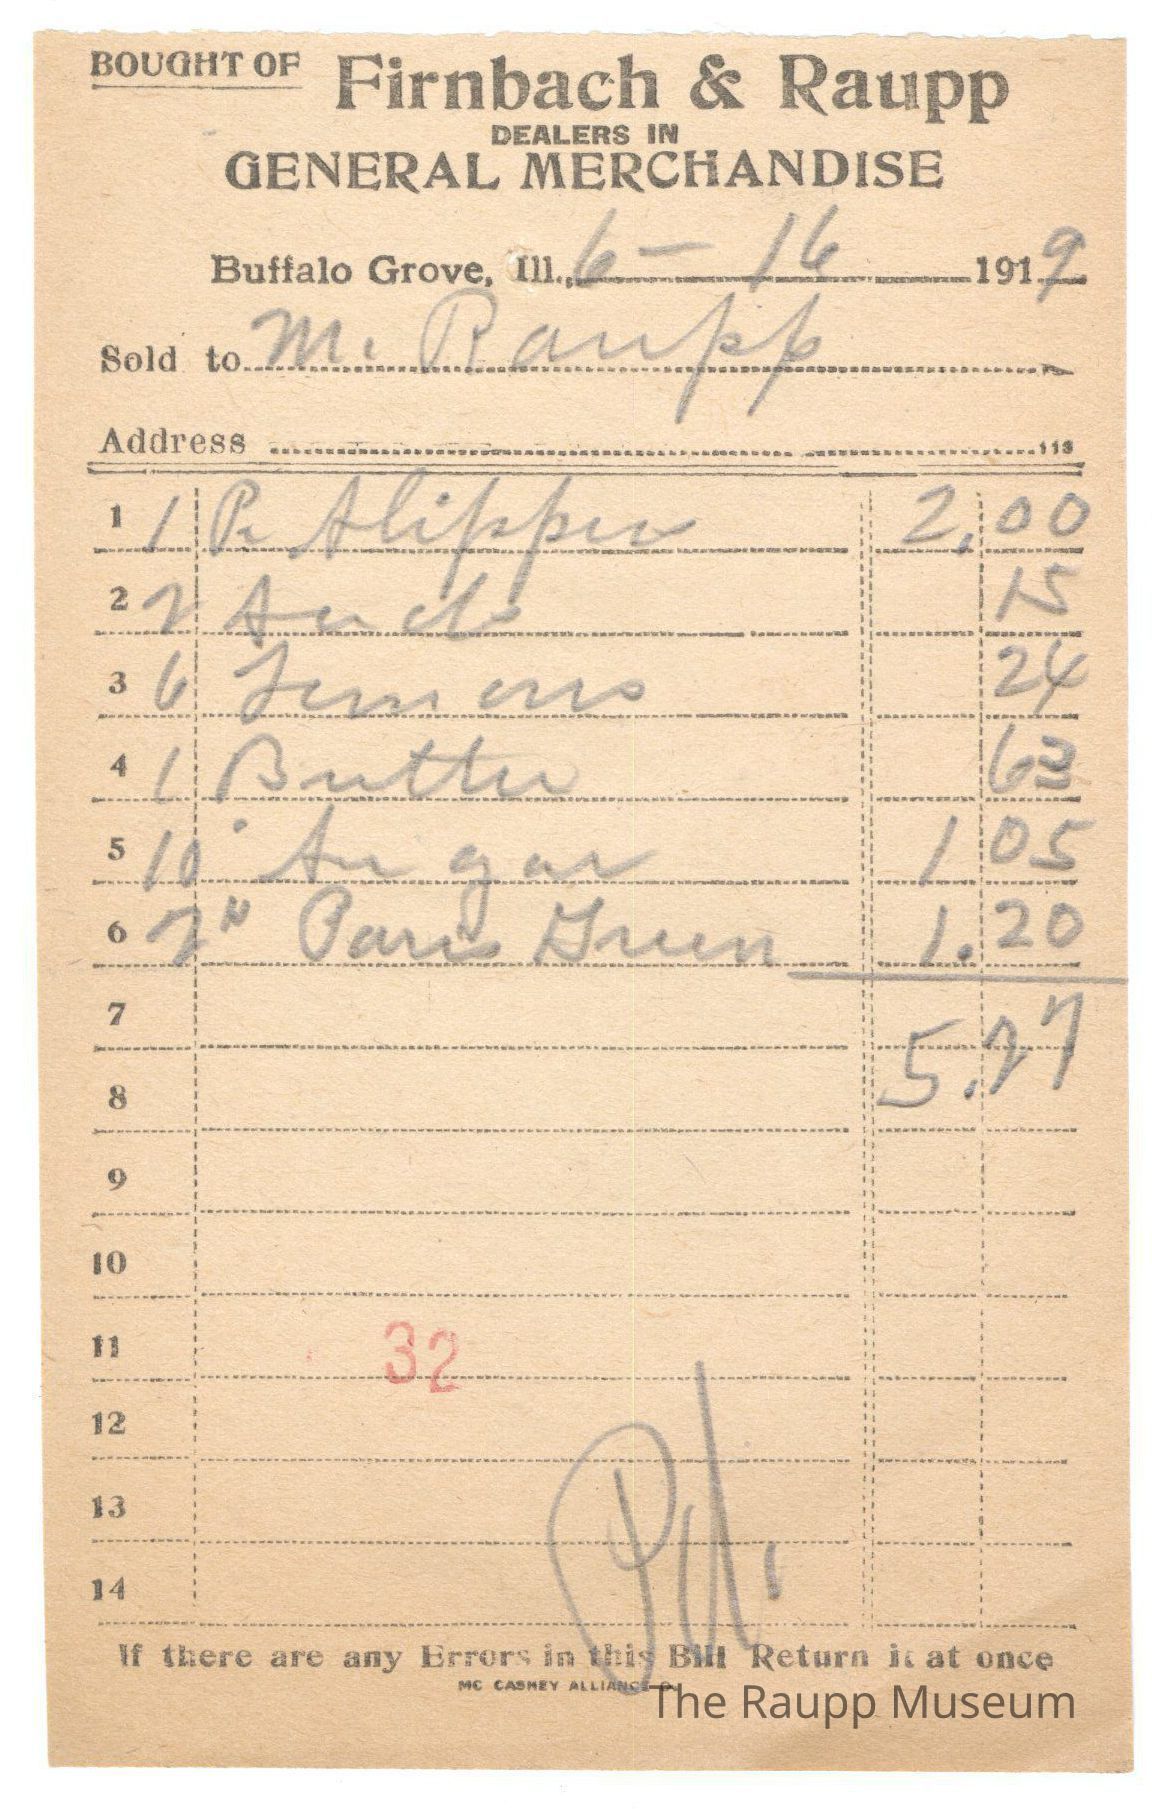 BOUGHT OF Firnbach & Raupp
DEALERS IN
GENERAL MERCHANDISE
Buffalo Grove, Ill., 6 - 16 1919
Sold to M. Raupp
Address
1 1 Pr Slippers 2,00
2 2 15
3 6 Lemons 24
4 1 Butter 63
5 10 Sugar 1 05
6 2" Paris Green 1.20
7
5.27
8
9
10
11 32
12
13
14
Pd.
If there are any Errors in this Bill Return it at once
MC CASKEY ALLIANCE O.
The Raupp Museum